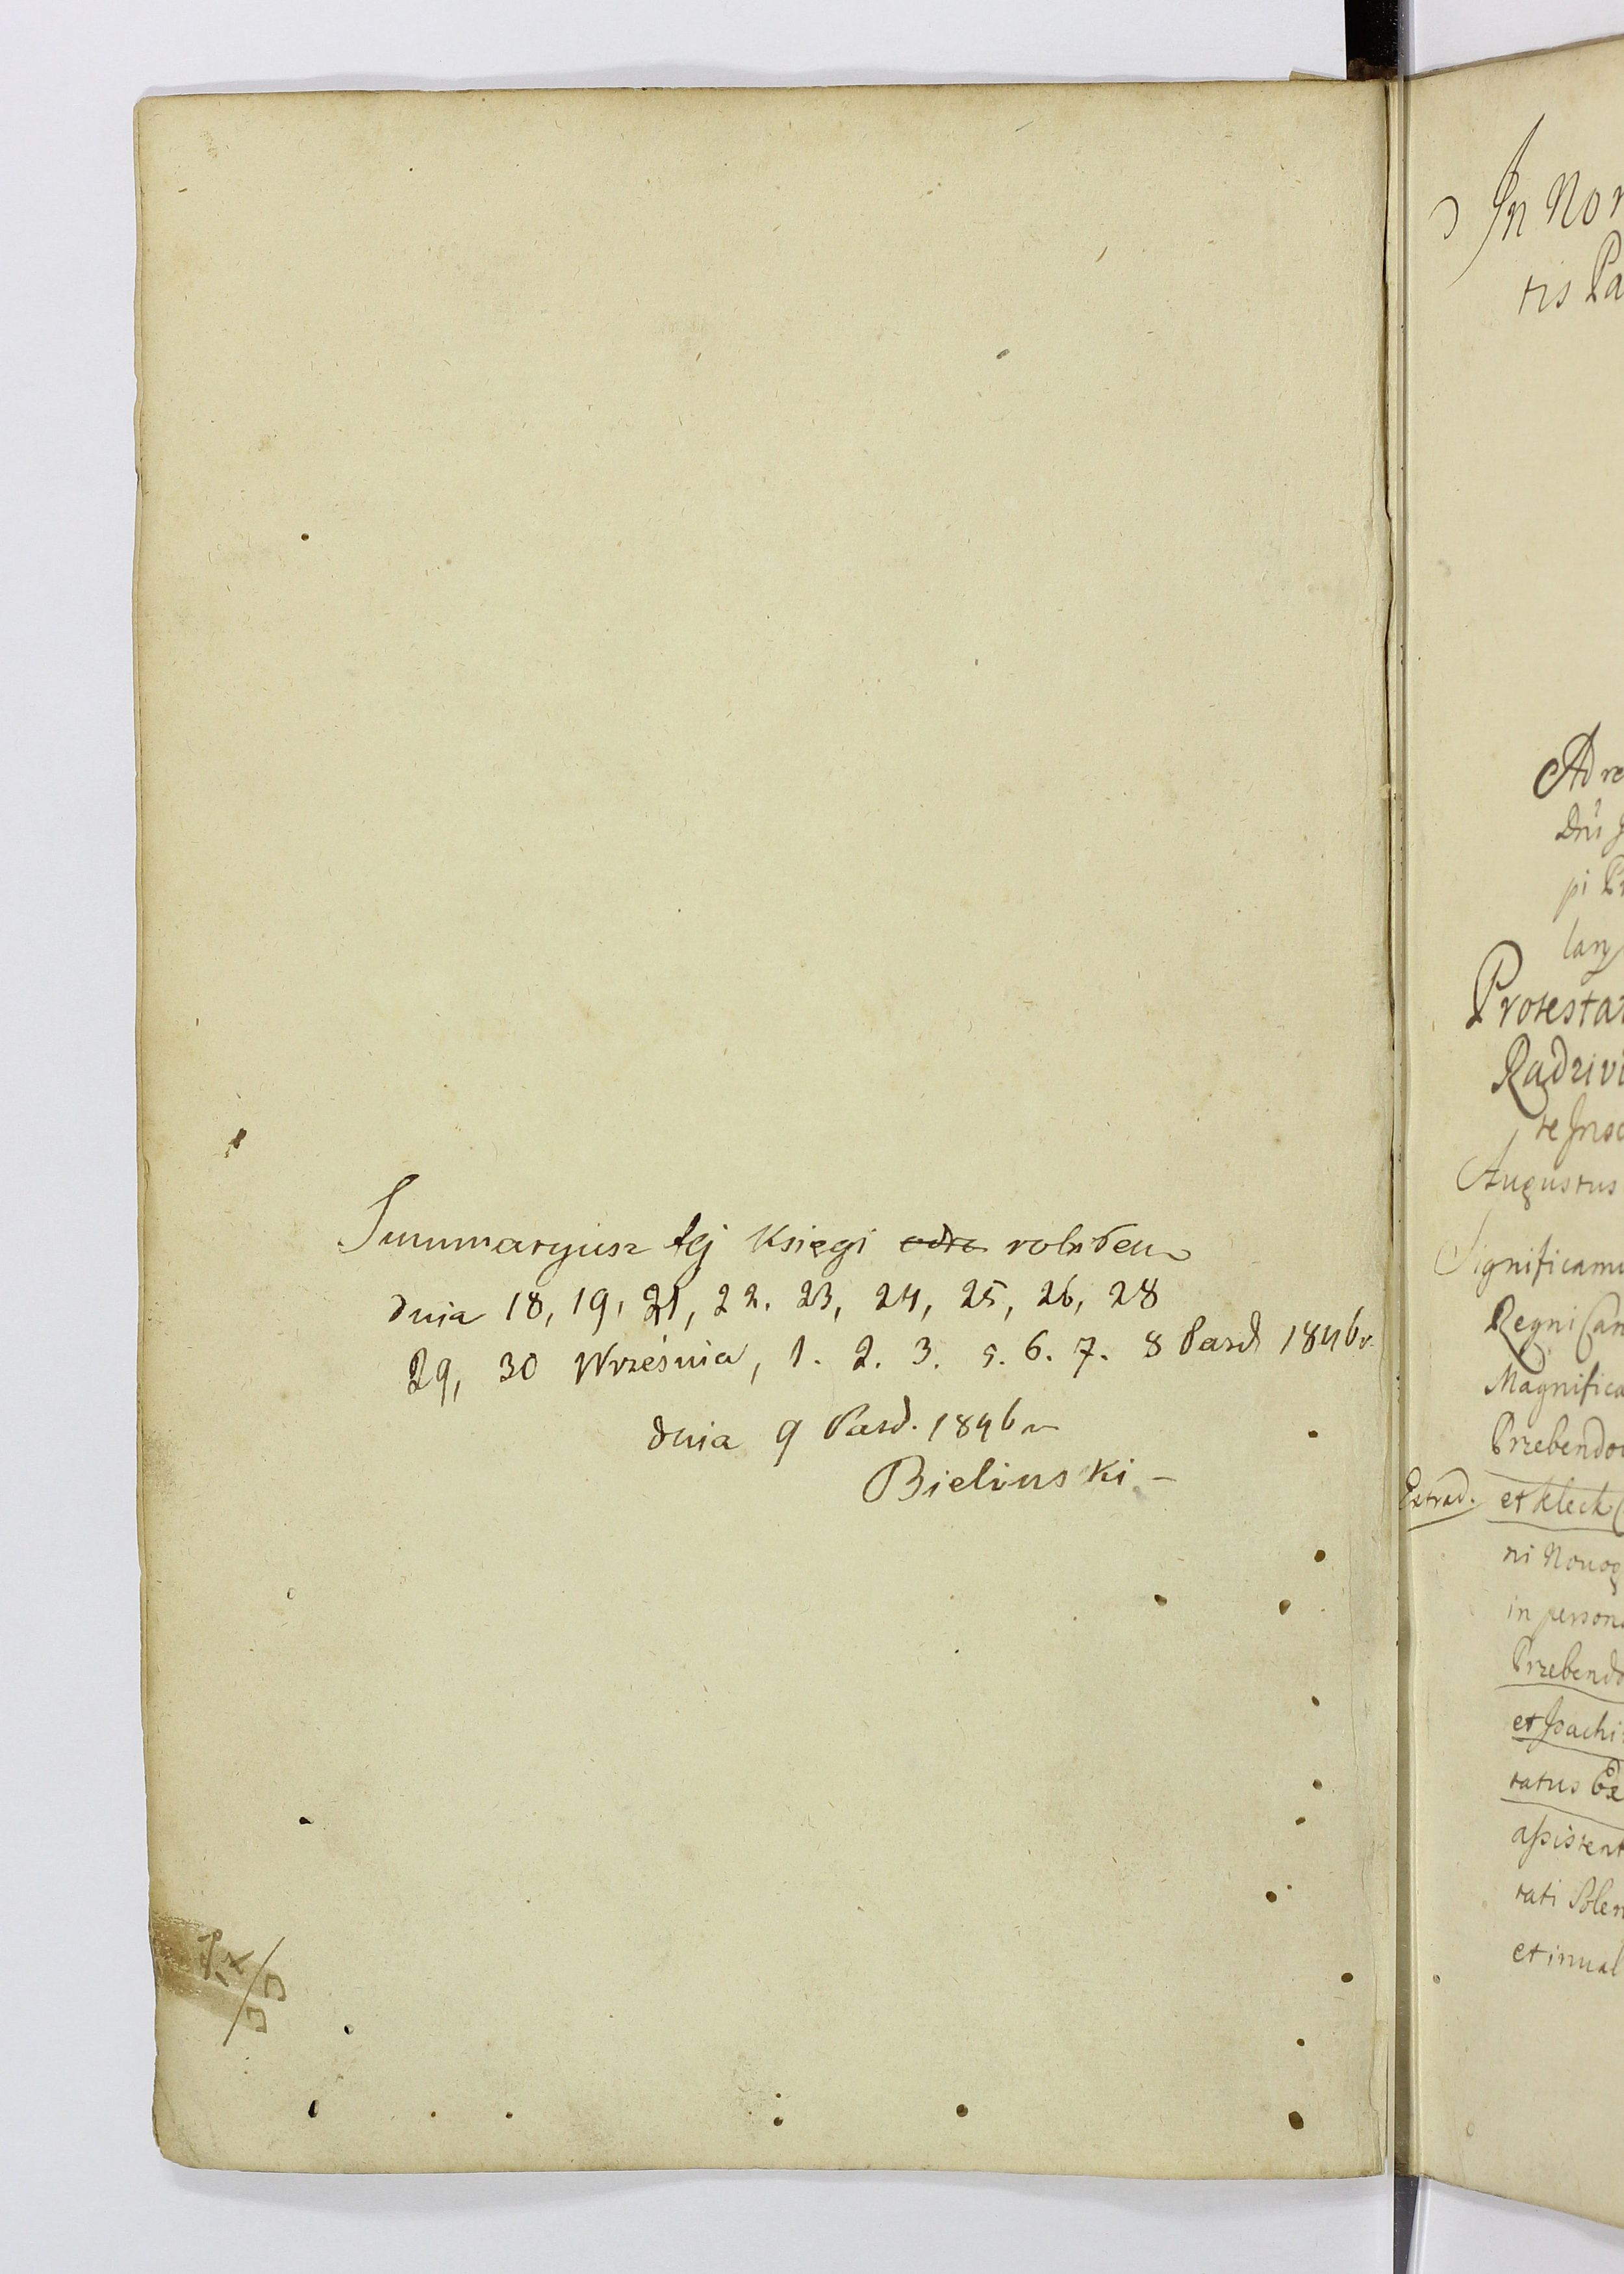 Summaryusz tej księgi robiłem
dnia 18, 19, 21, 22. 23, 24, 25, 26, 28
29, 30 Września, 1. 2. 3. 5. 6. 7. 8 Pazd 1846 r.
dnia 9 Pazd. 1846 r
Bielinski –
In Nom
tis Pa
Ad re
Dni J
pi Pr
lary
Protestat
Radzivi
te Insc
Augustus
Significamu
Regni Can
Magnifica
Przebendow
Extrad. et Kleck C
ni Novog
in persona
Przebendo
tatus Ex
assistent
tati Solen
et inval